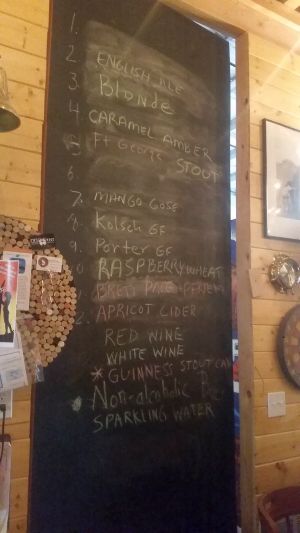 1.
2. ENGLISH ALE
3. BLONDE
4. CARAMEL AMBER
5 Ft George STOUT
6.
7. MANGO GOSE
8. Kölsch GF
9. Porter GF
0 RASPBERRY WHEAT
1 BRETT
2. APRICOT CIDER
RED WINE
WHITE WINE
* GUINNESS STOUT CAN
Non-alcoholic
SPARKLING WATER